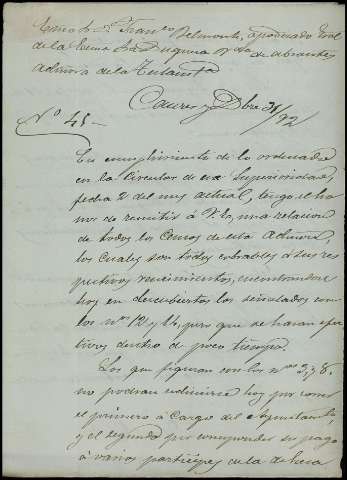 Exmo Sr. Dn. Franco Belmonte, apoderado Gral
de la Exma Sra Duquesa Vda de Abrantes
Admon de la
Caceres y Dbre 31/92
Nº 45-
En cumplimiento de lo ordenado
en la Circular de esa Superioridad
fecha 2 del mes actual, tengo el ho
nor de remitir à V.E. una relacion
de todos los Censos de esta Admon,
los cuales son todos cobrables à sus res
pectivos vencimientos, encontrandose
hoy en descubiertos los señalados con
los nos 12 y 14, pero que se haran efec
tivos dentro de poco tiempo.
Los que figuran con los nos 3, y 8.
no podran redimirse hoy por correr
el primero à cargo del Ayuntamto,
y el segundo por corresponder su pago
à varios participes en la dehesa